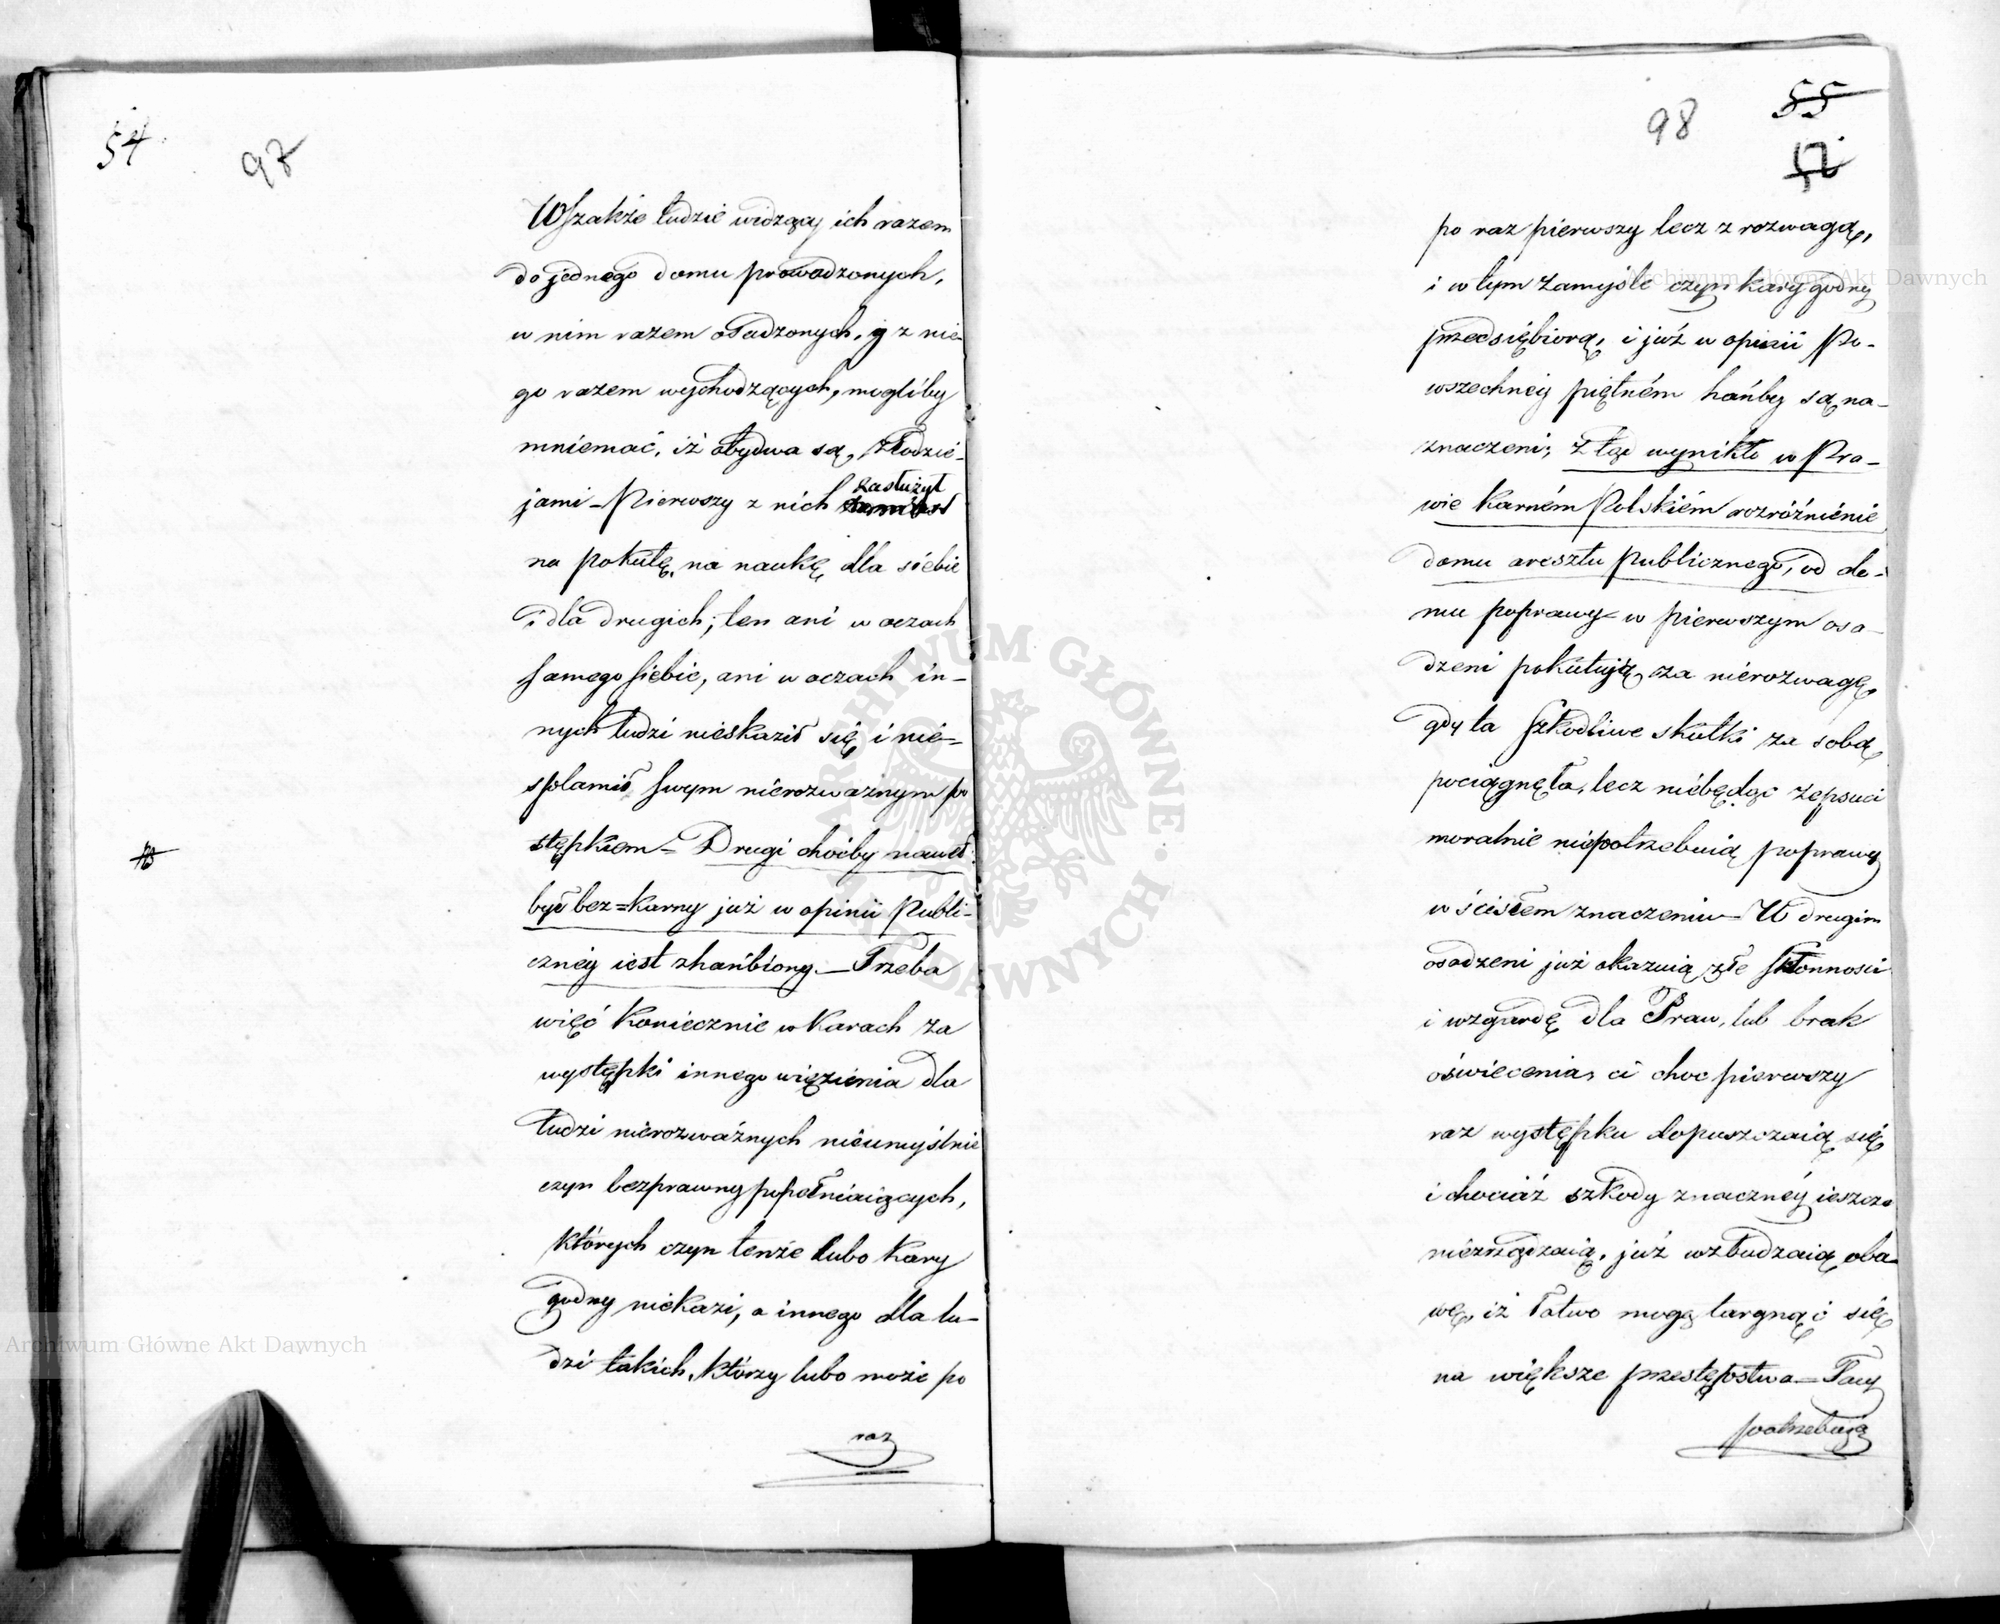 54
97
Wszakże ludzie widzący ich razem
do jednego domu prowadzonych,
w nim razem osadzonych, y z nie-
go razem wychodzących, mogliby
mniemać, iż obydwa są, złodzie-
jami – Pierwszy z nich zasłużył
na pokutę, na naukę dla siebie
i dla drugich; ten ani w oczach
samego siebie, ani w oczach in-
nych ludzi nieskaził się, i nie=
splamił swym nierozważnym po
stępkiem – Drugi choćby nawet
był bez=karny już w opinii Publi-
czney iest zhańbiony. – Trzeba
więc koniecznie w karach za
występki innego więzienia dla
ludzi nierozważnych nieumyślnie
czyn bezprawny popełniaiących,
których czyn tenże lubo kary
godny niekazi, a innego dla lu-
dzi takich, którzy lubo może po
raz
98
55
po raz pierwszy lecz z rozwagą,
i w tym zamyśle czyn kary godny
przedsiębiorą, i już w opinii Po-
wszechney piętném hańby są na-
znaczeni; Ztąd wynikło w Pra-
wie Karném Polskiém rozróżnienie
domu aresztu publicznego, od do-
mu poprawy – w pierwszym osa-
dzeni pokutują za nierozwagę,
gdy ta szkodliwe skutki za sobą
pociągnęła, lecz niebędąc zepsuci
moralnie niepotrzebuią poprawy
w ścisłem znaczeniu – W drugim
osadzeni już okazuią złe skłonności
i wzgardę dla Praw, lub brak
oświecenia, ci choc pierwszy
raz występku dopuszczaią się
i chociaż szkody znaczney ieszcze
niezrządzaią, już wzbudzaią oba-
wę, iż łatwo mogą targnąć się
na większe przestępstwa – Tacy
potrzebują
ARCHIWUM GŁÓWNE AKT DAWNYCH
Archiwum Główne Akt Dawnych
Archiwum Główne Akt Dawnych